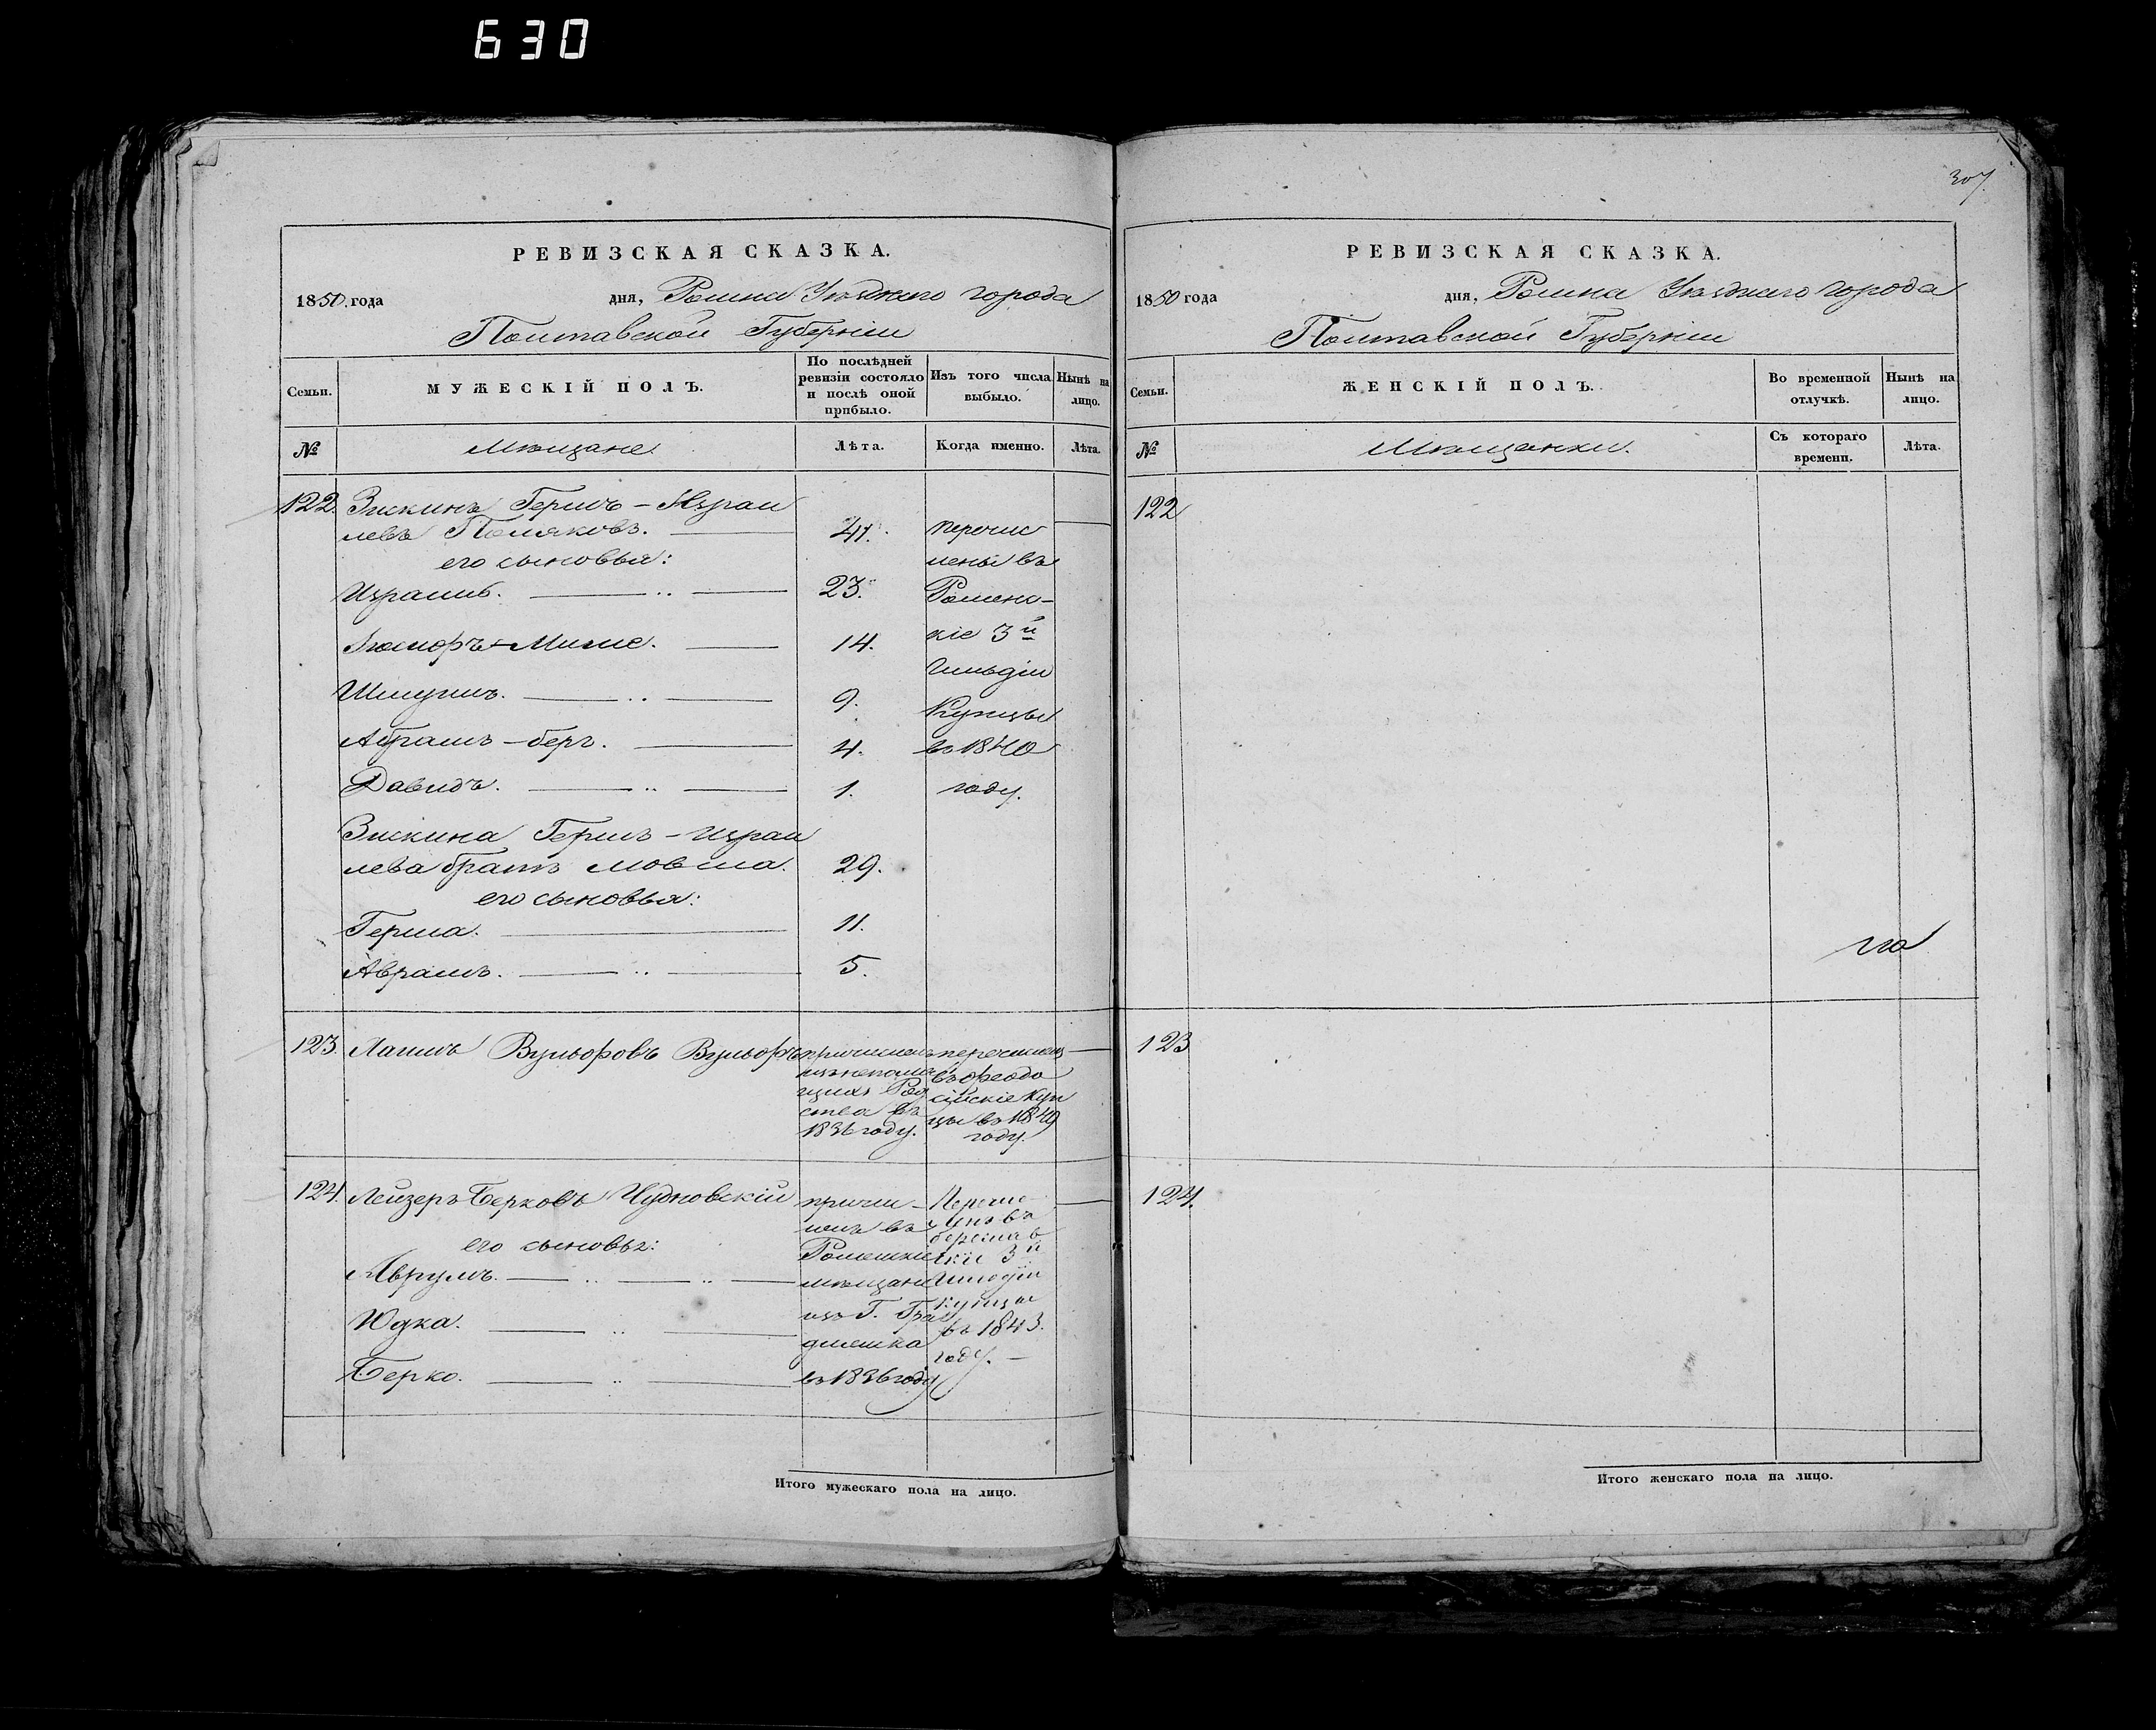 630
307
РЕВИЗСКАЯ СКАЗКА.
1850 года дня, Ромна Уѣзднаго города
Полтавской Губерніи
Семьи.
МУЖЕСКІЙ ПОЛЪ.
По послѣдней ревизіи состояло и послѣ оной прибыло.
Изъ того числа выбыло.
Нынѣ на лицо.
№
Мѣщане
Лѣта.
Когда именно.
Лѣта.
122. Зискинъ Гершъ-Израи
левъ Поляковъ. 41. перечис
его сыновья: лены въ
Израиль. 23. Роменс-
кіе 3й
14.
гильдіи
Шмуиль. 9.
Купцы
Абрамъ-беръ. 4. въ 1840
Давидъ. 1. году.
Зискина Гершъ-Израи
лева братъ Мовша. 29.
его сыновья:
Герша. 11.
Аврамъ. 5.
123. Вульфовъ Вульфъ причисленъ перечисленъ
въ Феодо
сійскіе куп
ства въ цы въ 1849
1836 году. году.
124. Лейзеръ Берковъ Чудновскій причис- Перечис
ленъ въ
его сыновья:
3й
Аврумъ. мѣщане гильдіи
изъ Г. купцы
Юдка. въ 1843.
году.
Берко. въ 1836 году
Итого мужескаго пола на лицо.
РЕВИЗСКАЯ СКАЗКА.
1850 года дня, Ромна Уѣзднаго города
Полтавской Губерніи
Семьи.
ЖЕНСКІЙ ПОЛЪ.
Во временной отлучкѣ.
Нынѣ на лицо.
№
Мѣщанки.
Съ котораго времени.
Лѣта.
122
го
123
124.
Итого женскаго пола на лицо.